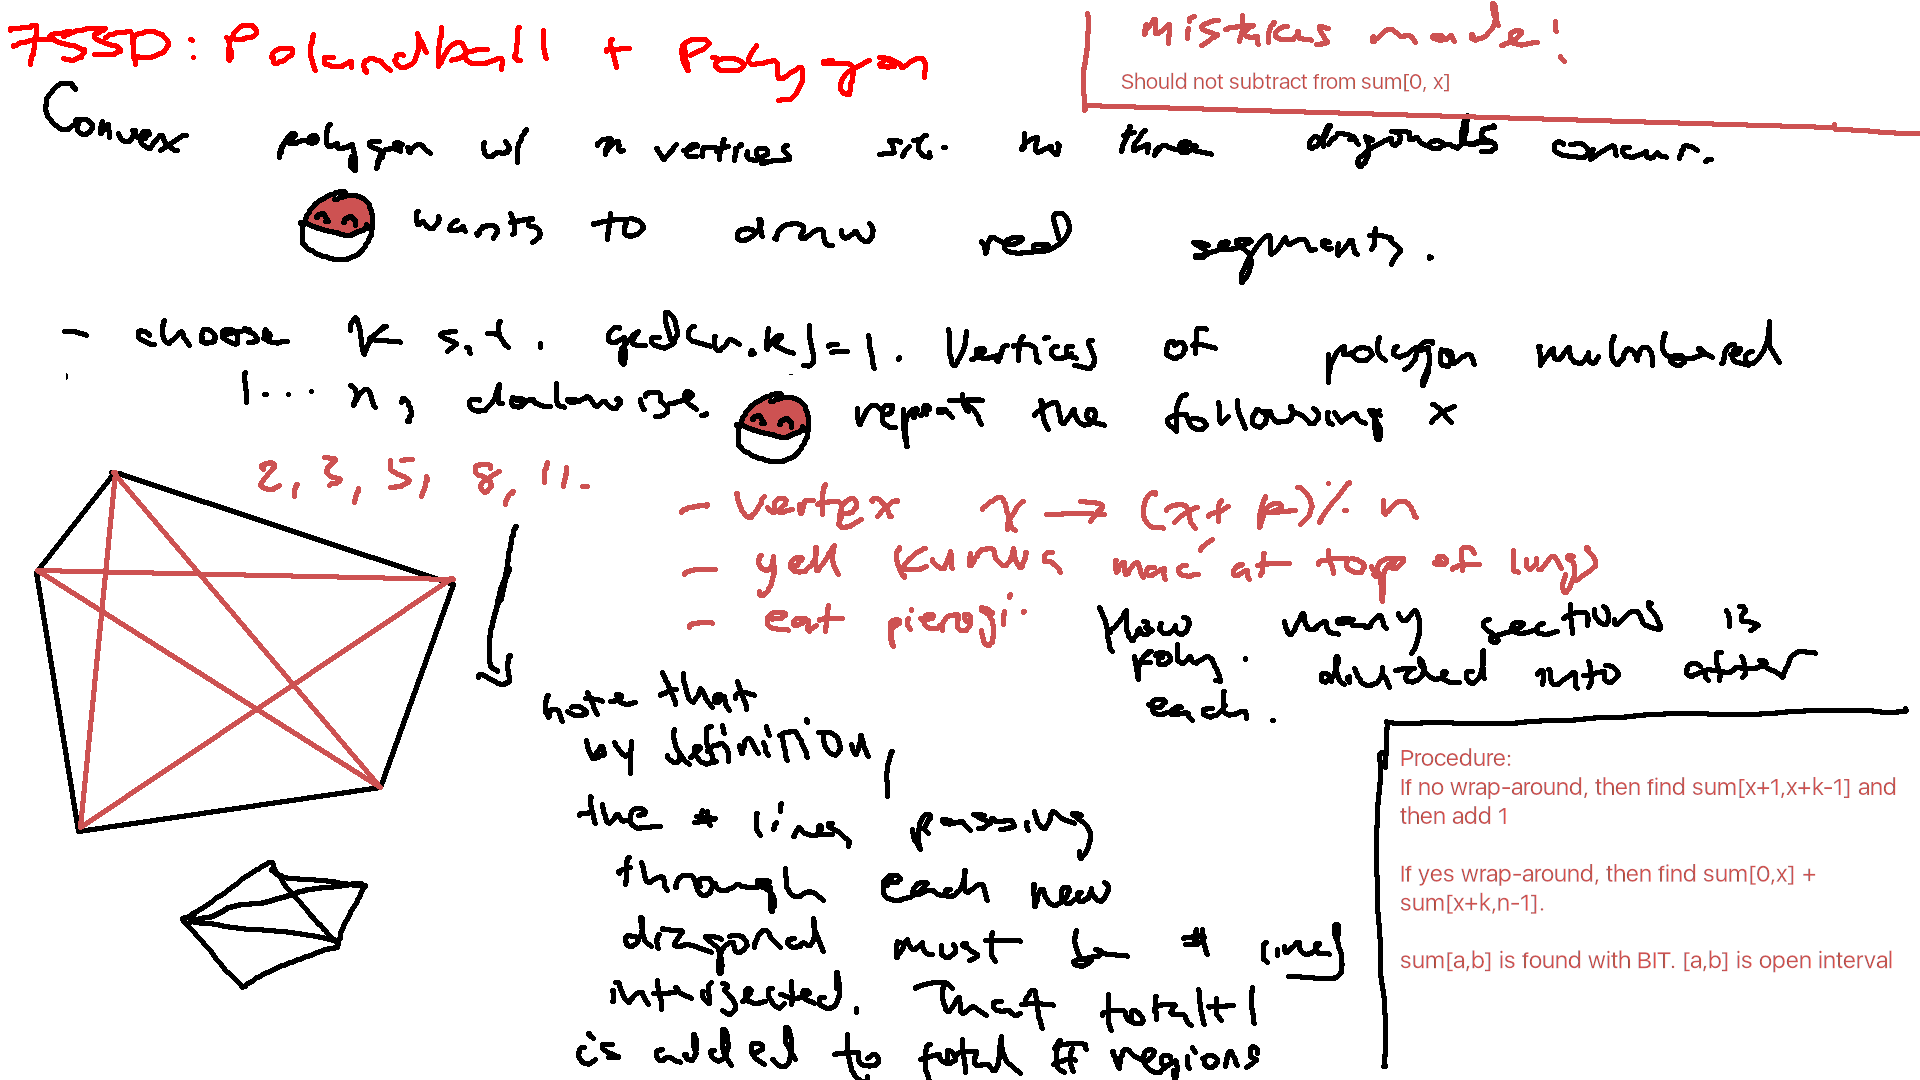 755D: Polandball + Polygon
Mistakes made!
Should not subtract from sum[0, x]
Convex polygon w/ n vertices s.t. no three diagonals concur.
wants to draw red segments.
- choose k s.t. gcd(n,k)=1. Vertices of polygon numbered
1... n, clockwise. repeats the following x
2, 3, 5, 8, 11.
- vertex x → (x+k)% n
- yell kurwa mać at top of lungs
- eat pierogi.
How many sections is
poly. divided into after
each.
note that
by definition,
the # lines passing
through each new
diagonal must be # lines
intersected. That total+1
is added to total # regions
Procedure:
If no wrap-around, then find sum[x+1,x+k-1] and
then add 1
If yes wrap-around, then find sum[0,x] +
sum[x+k,n-1].
sum[a,b] is found with BIT. [a,b] is open interval